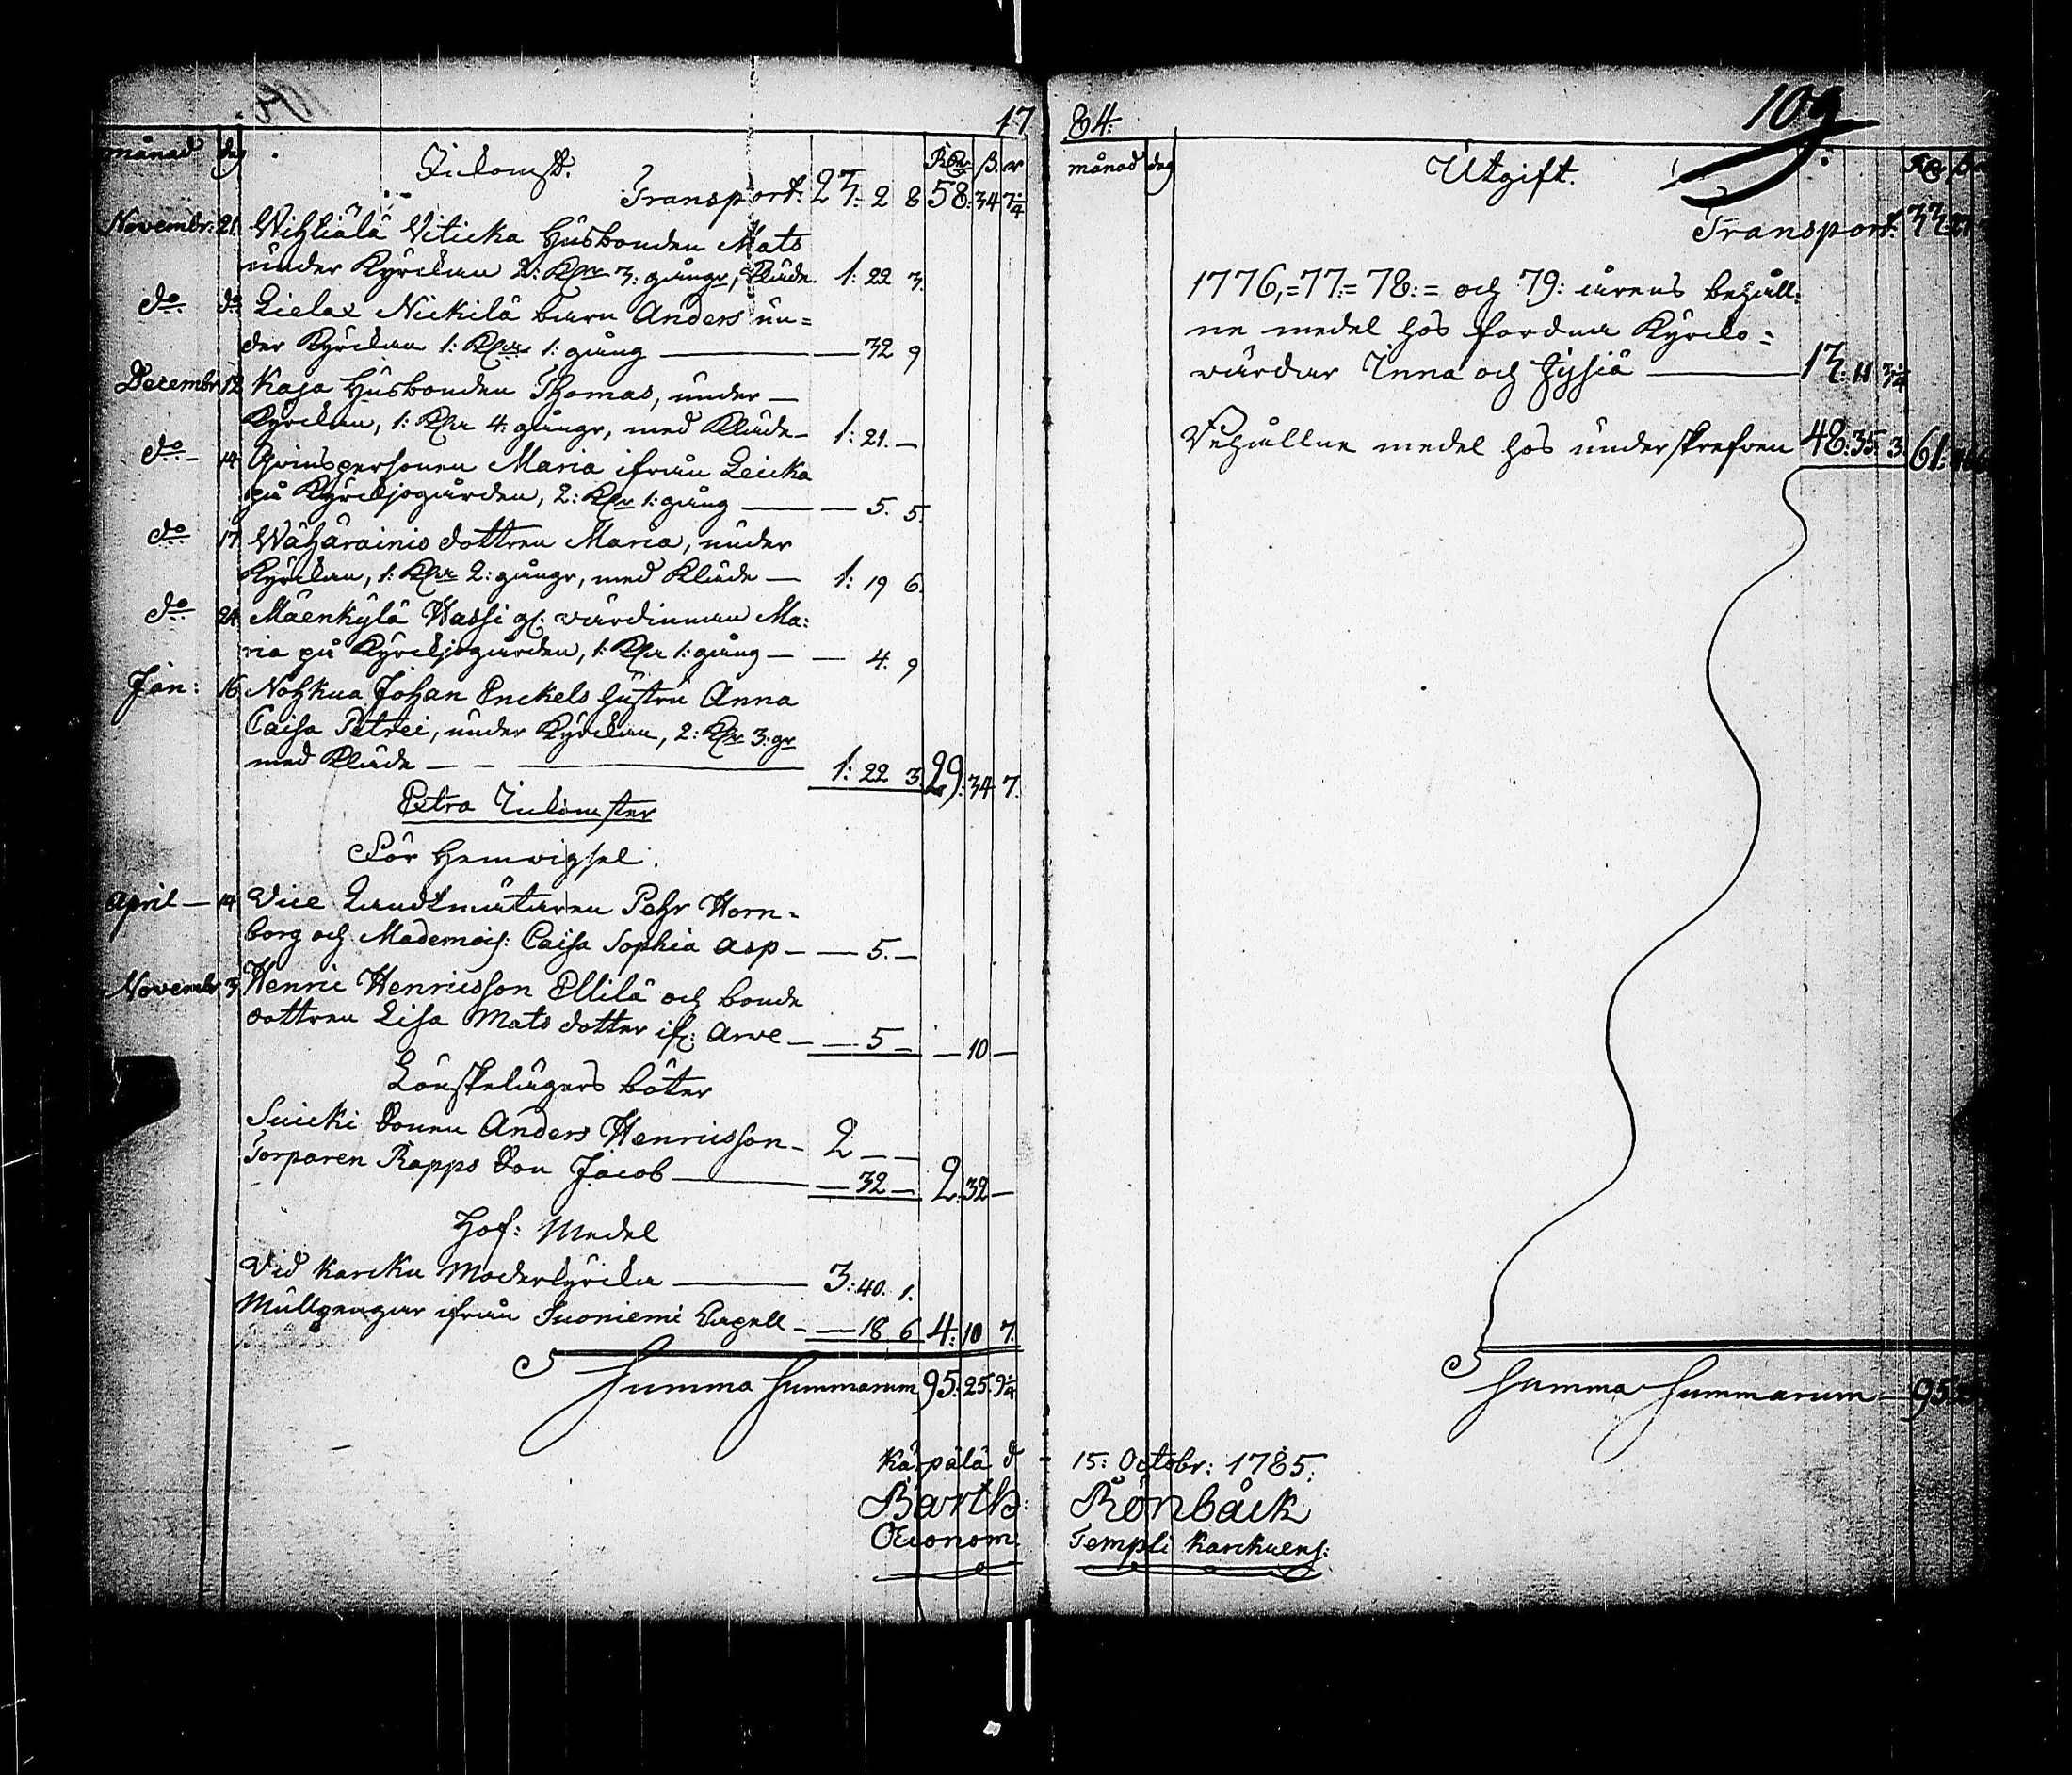 17
månad dag Inkomst. RDr ß. r
Transport. 27:2 8 58:34 7¼
Novembr: 21. Wihtiälä Viticka Husbonden Mats
under Kyrckan 2: Klr 3: gångr, Kläde 1: 22 3.
do do Lielax Nickilä barn Anders un=
der Kyrckan 1: Klr 1: gång — 32 9
Decembr 12 Kaja Husbonden Thomas, under —
Kyrckan, 1: Klr 4: gångr, med Kläde — 1: 21. —
do — 14 Qvinspersonen Maria ifrån Leicka
på Kyrckjogården, 2: Klr 1: gång — 5. 5.
do 17 Wähärainio dottren Maria, under
Kyrckan, 1: Klr 2: gångr, med Kläde — 1: 19 6.
do 24 Mäenkylä Hassi gl. värdinnan Ma:
ria på Kyrckjogården, 1: Klr 1: gång — — 4. 9
Jan: 16 Nohkua Johan Enckels hustru Anna
Caisa Petrei, under Kyrckan, 2: Klr 3: gr
med Kläde — 1: 22 3. 29: 34 7.
Extra Inkomster
För Hemvigsel.
April — 14 Vice Landtmätaren Pehr Horn=
borg och Mademois: Caisa Sophia Asp — — 5. —
Novembr 3 Henric Henricsson Ellilä och bonde
dottren Lisa Mats dotter if: Arve — — 5 — — 10 —
Lönskelägers böter
Suicki Sonen Anders Henricsson — 2 — —
Torparen Rapps Son Jacob — — 32 — 2: 32 —
Hof: Medel
Vid Karcku Moderkyrcka — 3: 40. 1.
Mullpengar ifrån Suoniemi Capell — — 18 6 4: 10 7.
Summa Summarum 95: 25. 9¼
Karpälä d
Barth:
Oeconom.
84.
109
månad dag Utgift.
Transport.
1776, = 77: = 78: = och 79: årens behåll:
ne medel hos fordna Kyrcko=
värdar Inna och Jyssiä — 17: 11 3¼
Behållne medel hos underskrefven 48: 35 3 61:
Summa Summarum — 95
15: Octobr: 1785.
Rönbäck
Templi Karckuens: